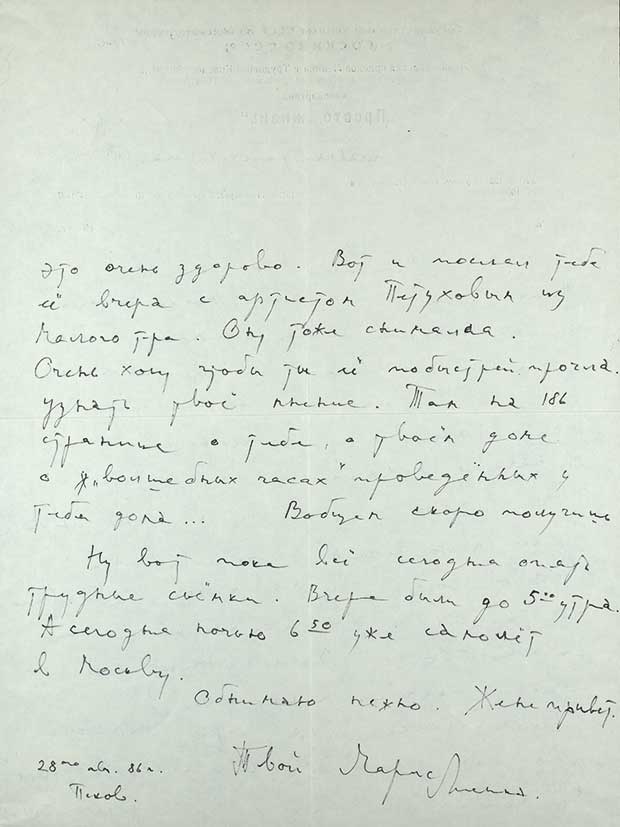 это очень здорово. Вот и послал тебе
её вчера с артистом Петуховым из
Малого т-ра. Он тоже снимался.
Очень хочу чтобы ты её побыстрей прочла.
узнать твоё мнение. Там на 186
странице о тебе, о твоём доме
о „волшебных часах" проведённых у
тебя дома... Вобщем скоро получишь
Ну вот пока всё сегодня опять
трудные съёмки. Вчера были до 5⁰⁰ утра.
А сегодня ночью 6⁵⁰ уже самолёт
в Москву.
Обнимаю нежно. Жене привет.
28го 86 г. Твой Марис Лиепа.
Псков.